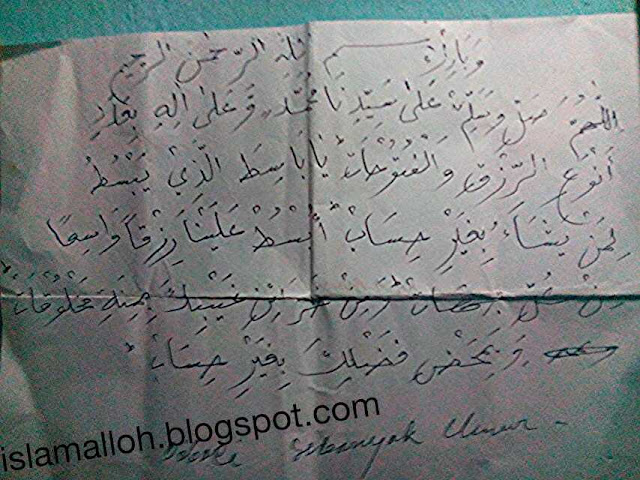 وَبَارِكْ
بسم الله الرَّحْمٰنِ الرَّحِيْمِ
اَللّٰهُمَّ صَلِّ وَسَلِّمْ عَلىٰ سَيِّدِنَا مُحَمَّدٍ وَعَلىٰ اٰلِهِ بِعَدَدِ
أَنْوَعِ الرِّزْقِ وَالْفُتُوْحَاتِ يَا بَاسِطَ الَّذِيْ يَبْسُطُ
لِمَنْ يَشَاءُ بِغَيْرِ حِسَابْ أُبْسُطْ عَلَيْنَا رِزْقًا وَاسِعًا
مِنْ كُلِّ مِنْ خَزَائِنِ غَيْبِكَ مَخْلُوْقَاتِ
وَبِمَحْضِ فَضْلِكَ بِغَيْرِ حِسَابْ
Sebanyak Umur -
islamalloh.blogspot.com